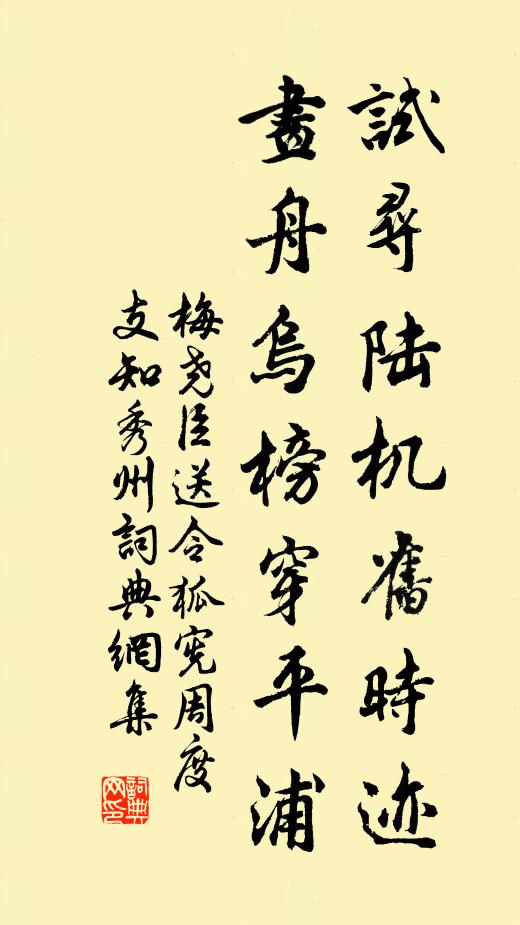 試尋陆机舊時迹
畫舟烏榜穿平浦
梅尧臣送令狐宪周度
支知秀州詞典網集
詞典
网印